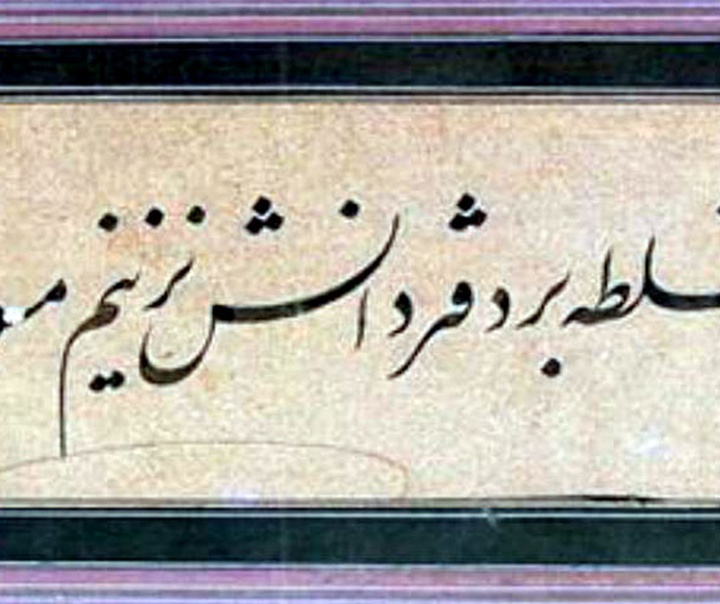 غلطه بر دفتر دانش نزنیم